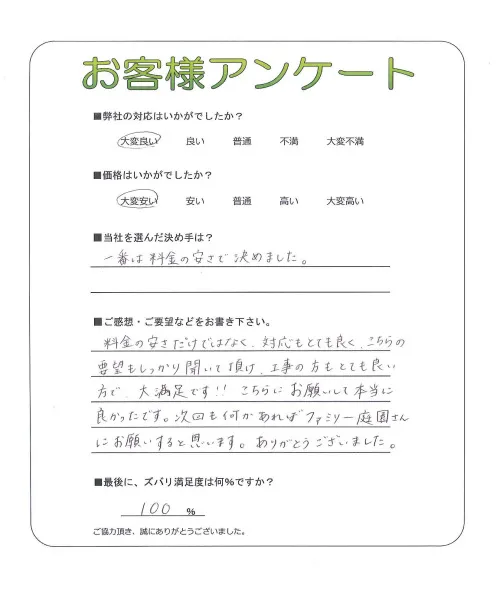 お客様アンケート
■弊社の対応はいかがでしたか？
大変良い 良い 普通 不満 大変不満
■価格はいかがでしたか？
大変安い 安い 普通 高い 大変高い
■当社を選んだ決め手は？
一番は料金の安さで決めました。
■ご感想・ご要望などをお書き下さい。
料金の安さだけではなく、対応もとても良く、こちらの
要望もしっかり聞いて頂け、工事の方もとても良い
方で、大満足です!! こちらにお願いして本当に
良かったです。次回も何かあればファミリー庭園さん
にお願いすると思います。ありがとうございました。
■最後に、ズバリ満足度は何%ですか？
100 %
ご協力頂き、誠にありがとうございました。